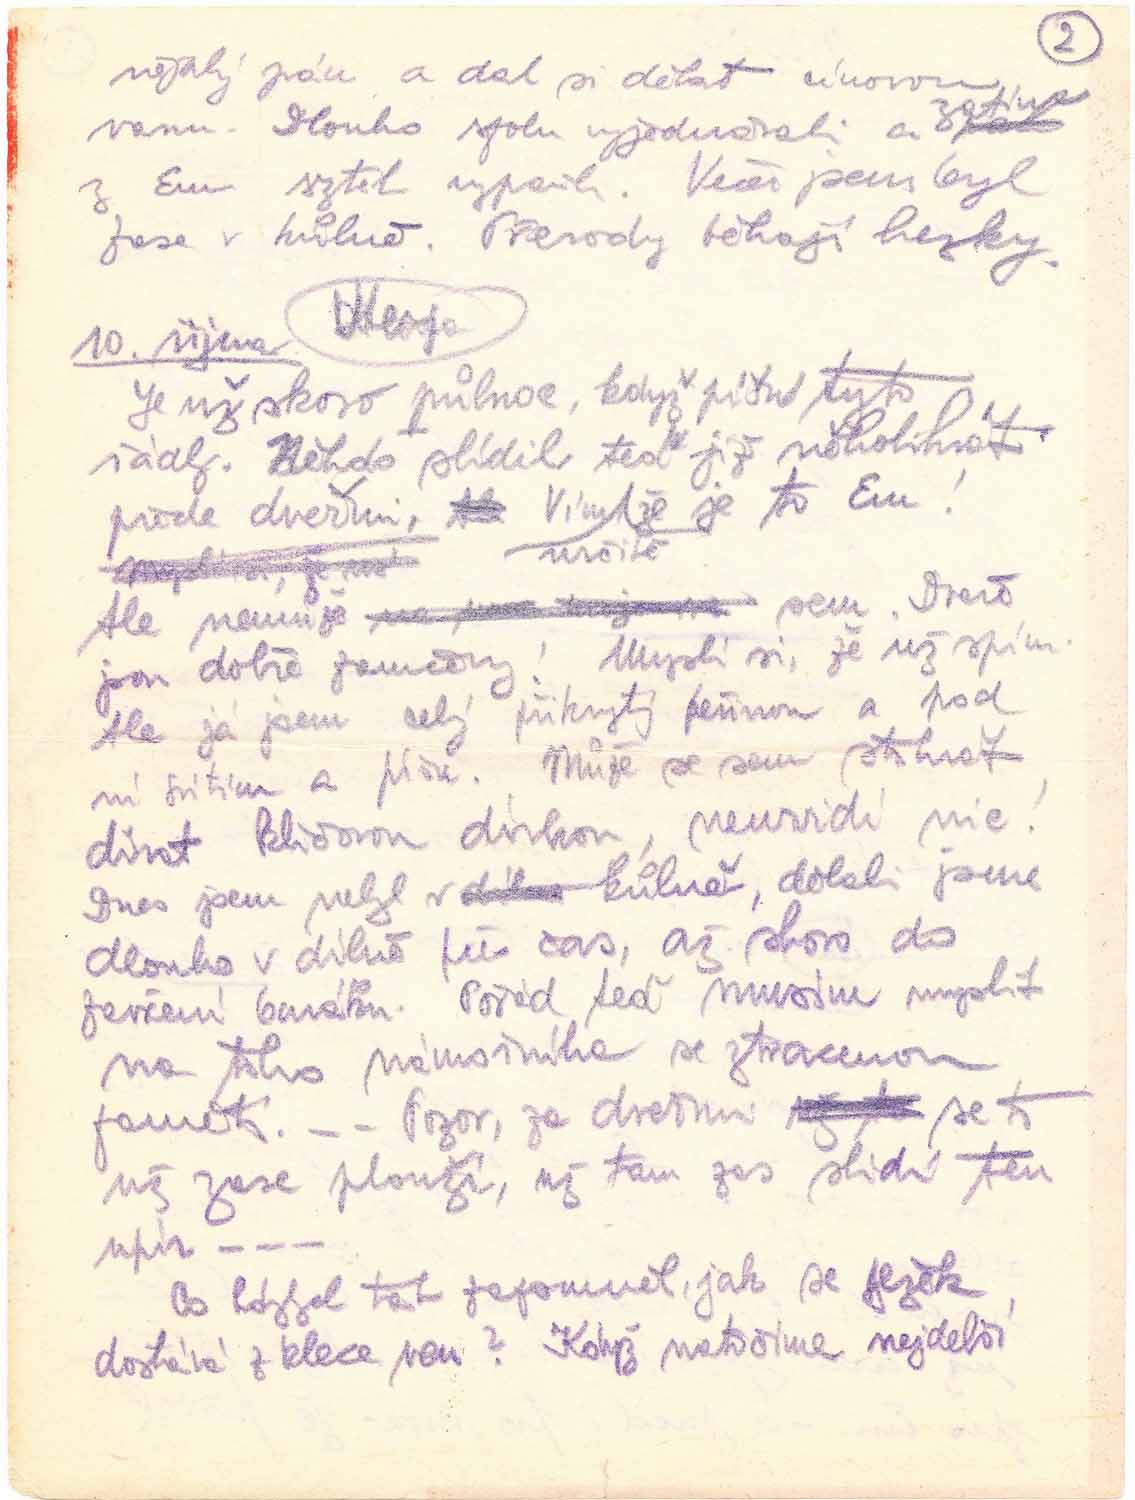 2
nějaký pán a dal si dělat cínovou
vanu. Dlouho spolu vyjednávali a zatím
z Em vztek vyprch. Večer jsem byl
zase v kůlně. Převody běhají hezky.
10. října
Je už skoro půlnoc, když píšu tyto
řádky. Někdo slídil teď již několikrát
přede dveřmi, Vím že je to Em!
určitě
Ale nemůže sem. Dveře
jsou dobře zamčeny! Myslí si, že už spím.
Ale já jsem celý přikrytý peřinou a pod
ní svítím a píšu. Může se sem stokrát
dívat klíčovou dírkou, neuvidí nic!
Dnes jsem nebyl v kůlně, dělali jsme
dlouho v dílně přes čas, až skoro do
zavření baráku. Pořád teď musím myslit
na toho námořníka se ztracenou
pamětí. – – Pozor, za dveřmi se to
už zase plouží, už tam zas slídí ten
upír – – –
Co kdybych zapomněl, jak se ježek
dostává z klece ven? Když natočíme nejdelší